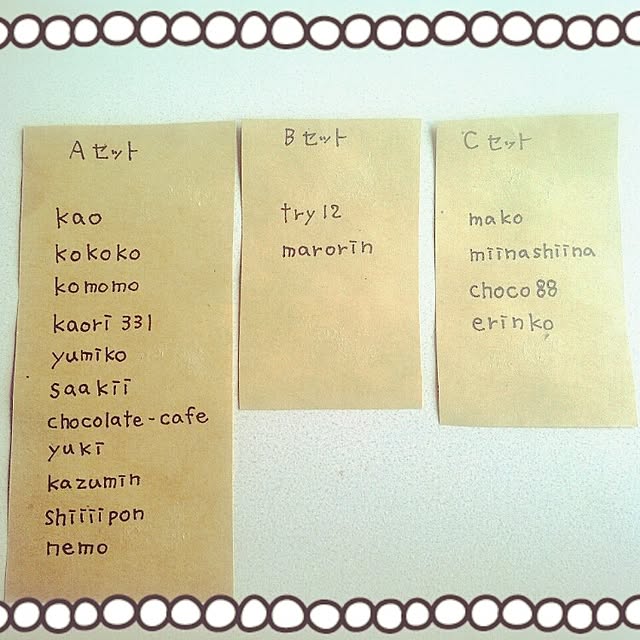 Aセット
kao
kokoko
komomo
kaori 331
yumiko
saakii
chocolate-cafe
yuki
kazumin
shiiiipon
nemo
Bセット
try12
marorin
Cセット
mako
miinashiina
choco88
erinko